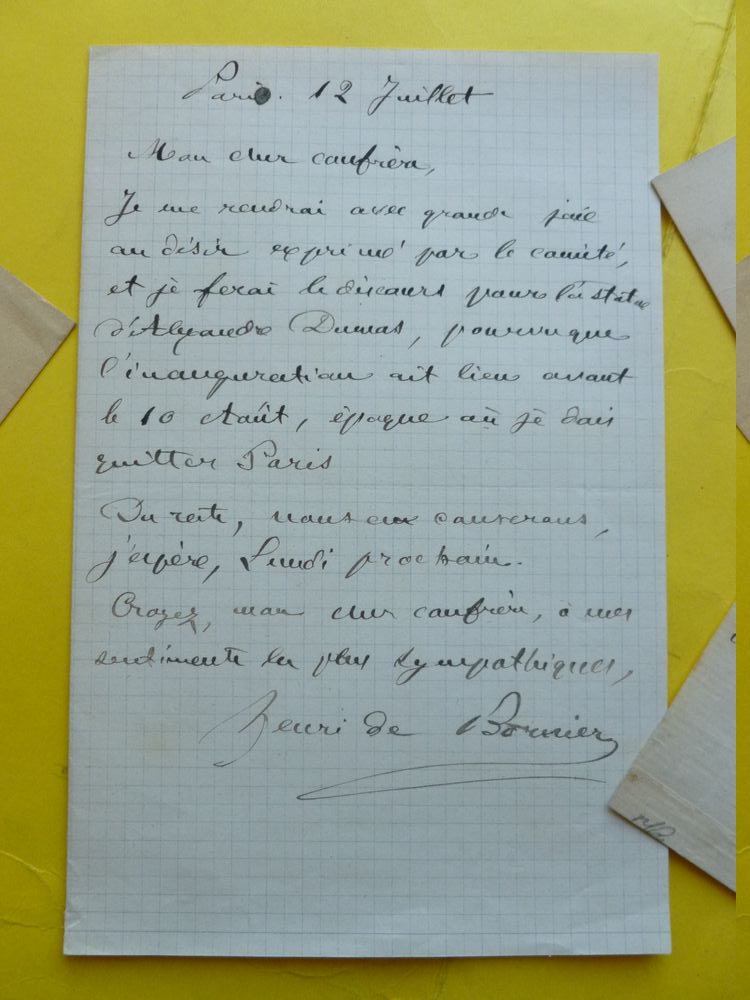 Paris. 12 Juillet
Mon cher confrère,
Je me rendrai avec grande joie
au désir exprimé par le comité,
et je ferai le discours pour la statue
d'Alexandre Dumas, pourvu que
l'inauguration ait lieu avant
le 10 Août, époque où je dois
quitter Paris
Du reste, nous en causerons,
j'espère, Lundi prochain.
Croyez, mon cher confrère, à mes
sentiments les plus sympathiques,
Henri de Bornier